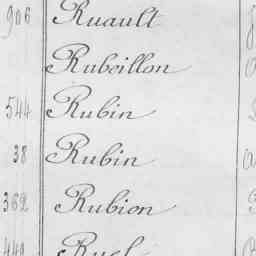 906 Ruault
Ruboillon
544 Rubin
38 Rubin
362 Rubion
449 Ruel